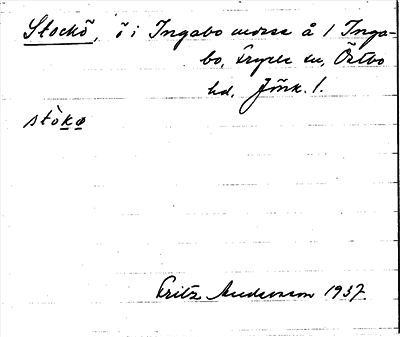 Stockö, ö i Ingabo mosse å 1 Inga-
bo, Fryele sn, Östbo
hd, Jönk. l.
stòkø
Fritz Andersson 1937.